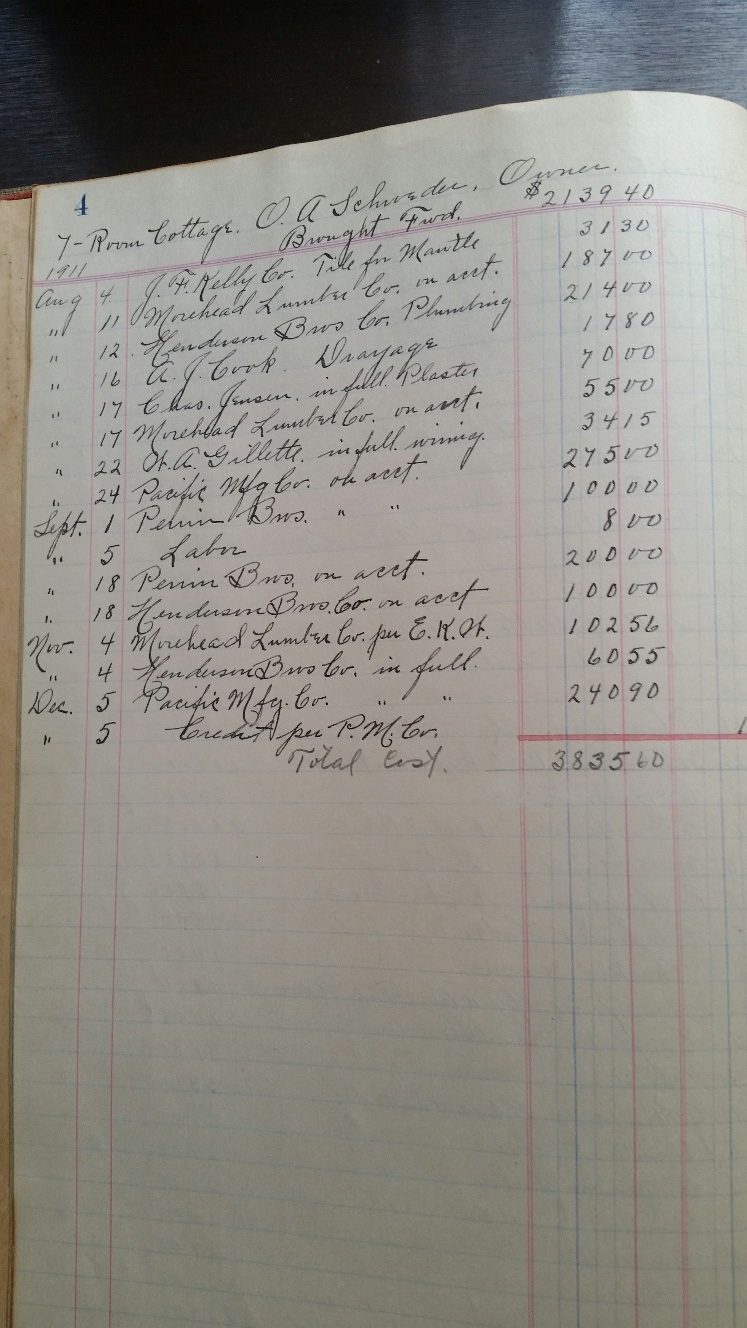 4
7-Room Cottage. O. A Schroeder, Owner.
Brought Fwd. $2139 40
1911
Aug 4. J. F. Kelly Co. Tile for Mantle 31 30
" 11 Morehead Lumber Co. on acct. 187 00
" 12. Henderson Bros Co. Plumbing 214 00
" 16 A. J. Cook. Drayage 17 80
" 17 Chas. Jensen. in full. Plaster 70 00
" 17 Morehead Lumber Co. on acct. 55 00
" 22 W. A. Gillette. in full. wiring. 34 15
" 24 Pacific Mfg Co. on acct. 275 00
Sept. 1 Perrin Bros. " " 100 00
" 5 Labor 8 00
" 18 Perrin Bros. on acct. 200 00
" 18 Henderson Bros. Co. on acct 100 00
Nov. 4 Morehead Lumber Co. per E. K. W. 102 56
" 4 Henderson Bros Co. in full. 60 55
Dec. 5 Pacific Mfg. Co. " " 240 90
" 5 Credit per P. M. Co.
Total Cost. 3835 60